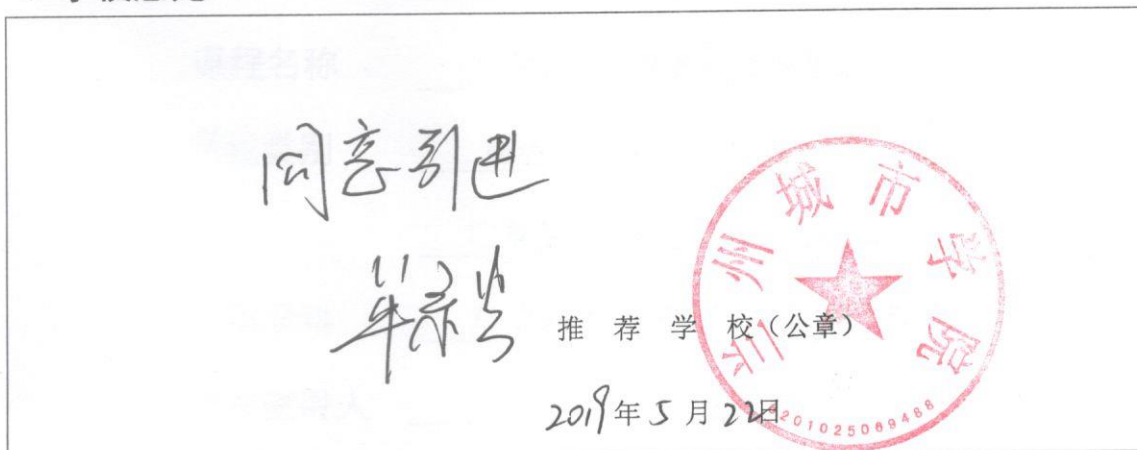 同意引进
推荐学校（公章）
2019年5月22日
兰州城市学院
6201025069488